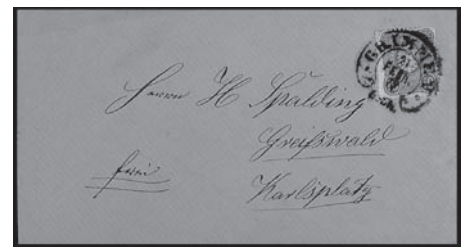 Herrn H Spalding
Greifswald
frei
Karlsplatz